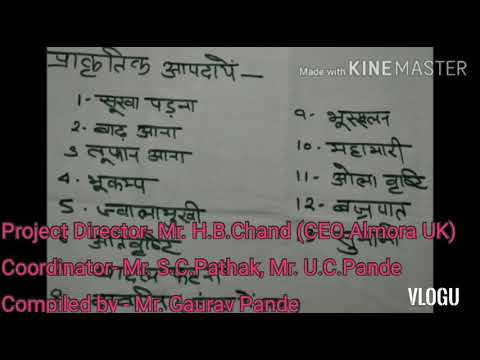 प्राकृतिक आपदायें —
Made with KINEMASTER
1- सूखा पड़ना
2- बाढ़ आना
3 तूफान आना
4- भूकम्प
5- ज्वालामुखी
9- भूस्खलन
10- महामारी
11- ओला वृष्टि
12- बज्रपात
सुनामी
Project Director- Mr. H.B.Chand (CEO Almora UK)
Coordinator- Mr. S.C.Pathak, Mr. U.C.Pande
Compiled by - Mr. Gaurav Pande
VLOGU